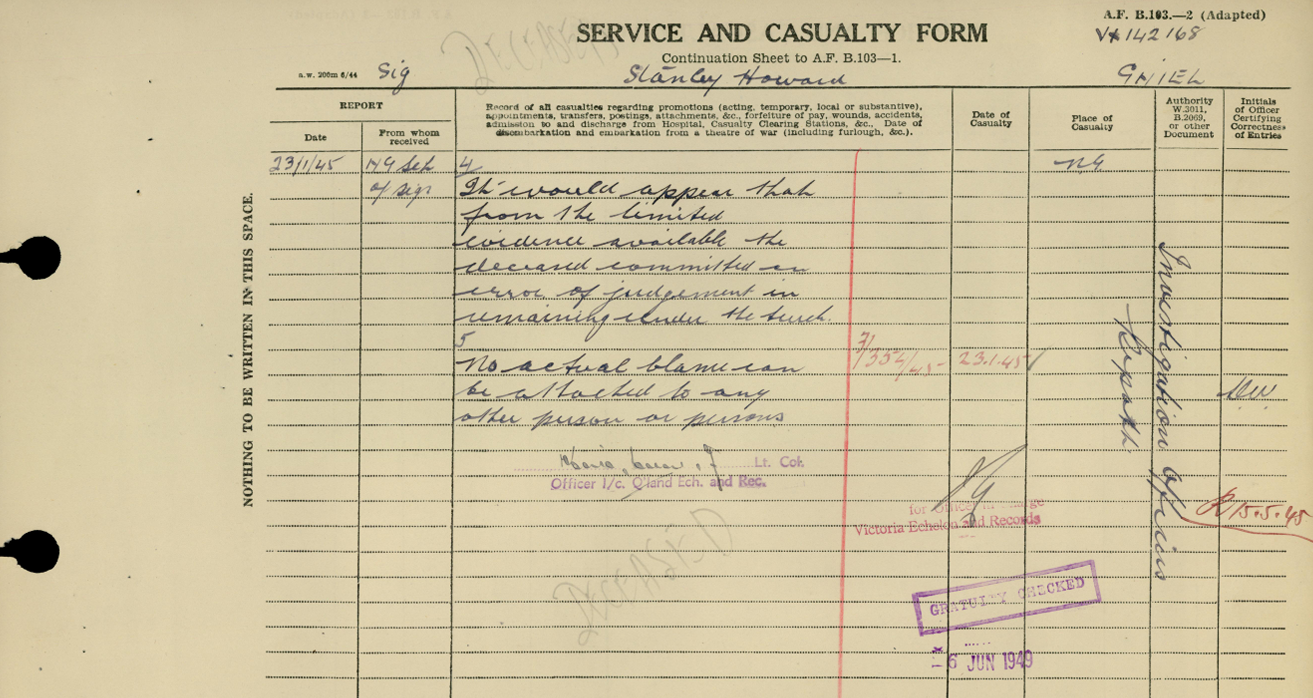 A.F. B.103.—2 (Adapted)
SERVICE AND CASUALTY FORM
VX142168
Continuation Sheet to A.F. B.103—1.
a.w. 200m 6/44 Sig Stanley Howard
DECEASED
REPORT
Date
From whom received
Record of all casualties regarding promotions (acting, temporary, local or substantive),
appointments, transfers, postings, attachments, &c., forfeiture of pay, wounds, accidents,
admission to and discharge from Hospital, Casualty Clearing Stations, &c., Date of
disembarkation and embarkation from a theatre of war (including furlough, &c.).
Date of
Casualty
Place of
Casualty
Authority
W.3011,
B.2069,
or other
Document
Initials
of Officer
Certifying
Correctness
of Entries
NOTHING TO BE WRITTEN IN THIS SPACE.
23/1/45
of sigs
4
It would appear that
from the limited
evidence available the
deceased committed an
error of judgement in
remaining under the truck.
5
No actual blame can
be attached to any
other person or persons
23.1.45
Investigation Officers
Report
Lt. Col.
Officer I/c. Q'land Ech. and Rec.
for Officer in Charge
Victoria Echelon and Records
15.5.45
DECEASED
GRATUITY CHECKED
- 6 JUN 1949